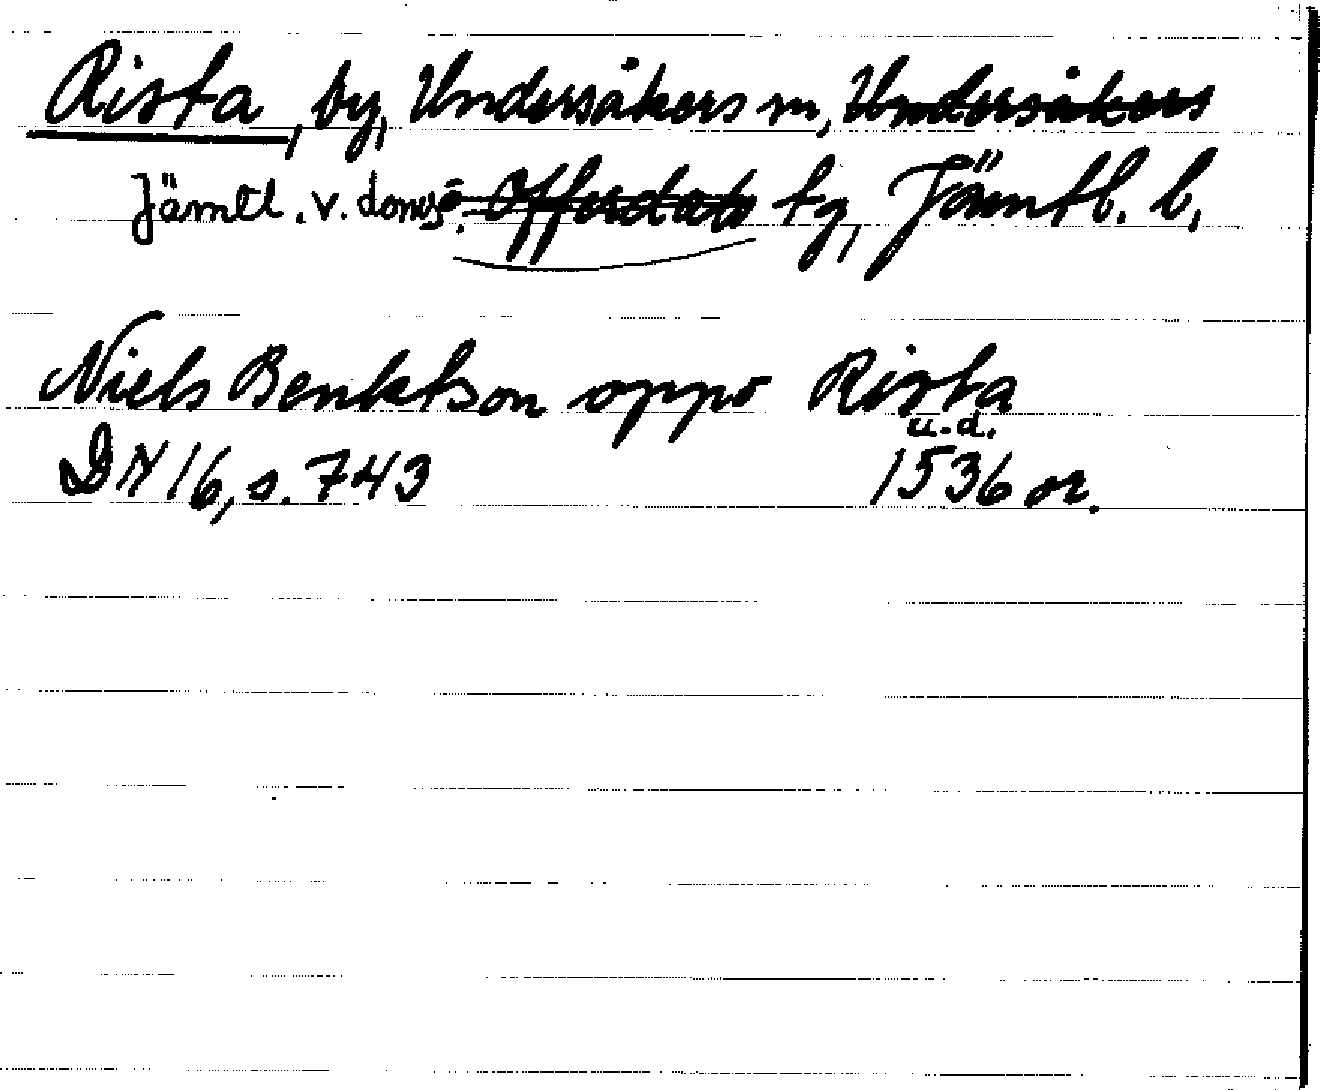 Rista, by, Undersåkers sn, Undersåkers
Jämtl. v. doms. Offerdals tg, Jämtl. l,
Niels Benktson oppo Rista
u.d.
DN 16, s. 743 1536 or.